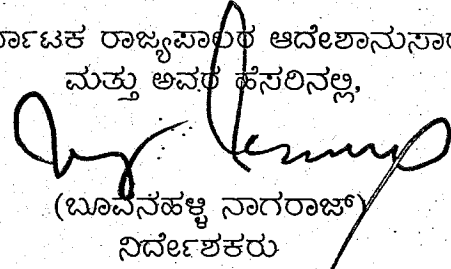 ರ್ನಾಟಕ ರಾಜ್ಯಪಾಲರ ಆದೇಶಾನುಸಾರ
ಮತ್ತು ಅವರ ಹೆಸರಿನಲ್ಲಿ,
(ಬೂವನಹಳ್ಳಿ ನಾಗರಾಜ್)
ನಿರ್ದೇಶಕರು